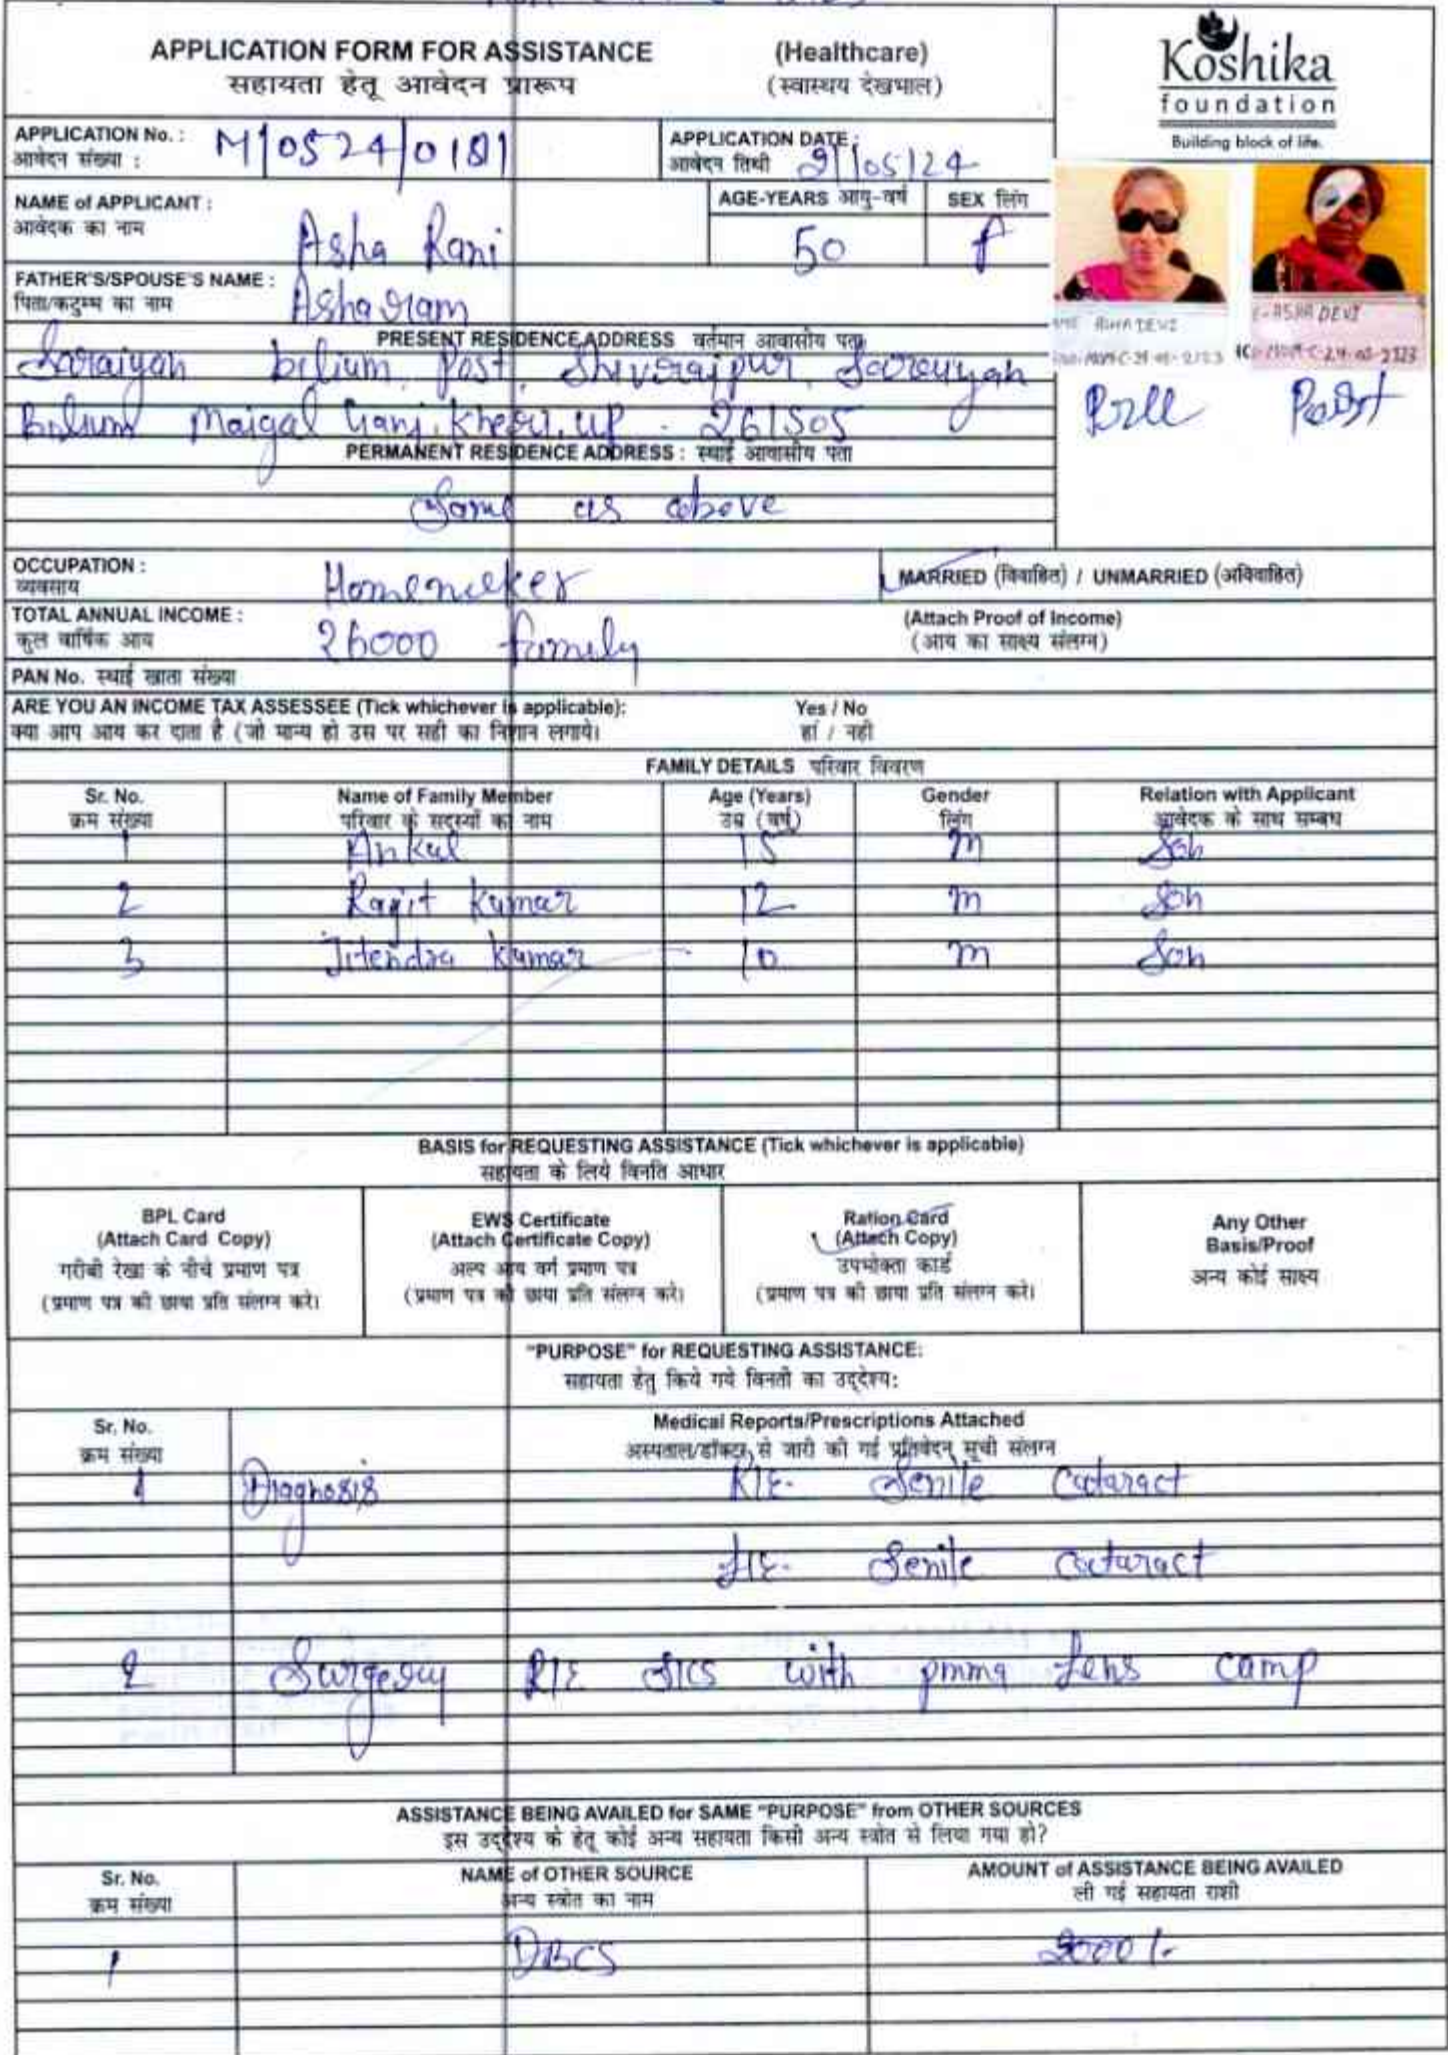 APPLICATION FORM FOR ASSISTANCE (Healthcare)
सहायता हेतू आवेदन प्रारूप (स्वास्थय देखभाल)
Koshika
foundation
Building block of life.
APPLICATION No. : M/0524/0181
आवेदन संख्या :
APPLICATION DATE :
आवेदन तिथी 9/05/24
NAME of APPLICANT :
आवेदक का नाम
Asha Rani
AGE-YEARS आयु-वर्ष
50
SEX लिंग
f
FATHER'S/SPOUSE'S NAME :
पिता/कटुम्ब का नाम
Asharam
ASHA DEVI
ASHA DEVI
Post
PRESENT RESIDENCE ADDRESS वर्तमान आवासीय पता
Saraiyan belium, Post, Shivrajpur, Saraiyan
Belium Maigal Ganj, Kheri, UP. 261505
PERMANENT RESIDENCE ADDRESS : स्थाई आवासीय पता
Same as above
OCCUPATION :
व्यवसाय
Homemaker
MARRIED (विवाहित) / UNMARRIED (अविवाहित)
TOTAL ANNUAL INCOME :
कुल वार्षिक आय
26000 family
(Attach Proof of Income)
(आय का साक्ष्य संलग्न)
PAN No. स्थाई खाता संख्या
ARE YOU AN INCOME TAX ASSESSEE (Tick whichever is applicable): Yes / No
क्या आप आय कर दाता है (जो मान्य हो उस पर सही का निशान लगाये। हां / नही
FAMILY DETAILS परिवार विवरण
Sr. No. Name of Family Member Age (Years) Gender Relation with Applicant
क्रम संख्या परिवार के सदस्यों का नाम उम्र (वर्ष) लिंग आवेदक के साथ सम्बध
1 Ankul 15 M Son
2 Ragit Kumar 12 M Son
3 Jitendra Kumar 10 M Son
BASIS for REQUESTING ASSISTANCE (Tick whichever is applicable)
सहायता के लिये विनति आधार
BPL Card
(Attach Card Copy)
गरीबी रेखा के नीचे प्रमाण पत्र
(प्रमाण पत्र की छाया प्रति संलग्न करे।
EWS Certificate
(Attach Certificate Copy)
अल्प आय वर्ग प्रमाण पत्र
(प्रमाण पत्र की छाया प्रति संलग्न करे।
Ration Card
(Attach Copy)
उपभोक्ता कार्ड
(प्रमाण पत्र की छाया प्रति संलग्न करे।
Any Other
Basis/Proof
अन्य कोई साक्ष्य
"PURPOSE" for REQUESTING ASSISTANCE:
सहायता हेतु किये गये विनती का उद्देश्य:
Sr. No. Medical Reports/Prescriptions Attached
क्रम संख्या अस्पताल/डॉक्टर से जारी की गई प्रतिवेदन सूची संलग्न
1 Diagnosis R/E- Senile Cataract
L/E- Senile Cataract
2 Surgery R/E SICS with pmma Lens camp
ASSISTANCE BEING AVAILED for SAME "PURPOSE" from OTHER SOURCES
इस उद्देश्य के हेतू कोई अन्य सहायता किसी अन्य स्त्रोत से लिया गया हो?
Sr. No. NAME of OTHER SOURCE AMOUNT of ASSISTANCE BEING AVAILED
क्रम संख्या अन्य स्त्रोत का नाम ली गई सहायता राशी
1 DBCS 2000/-